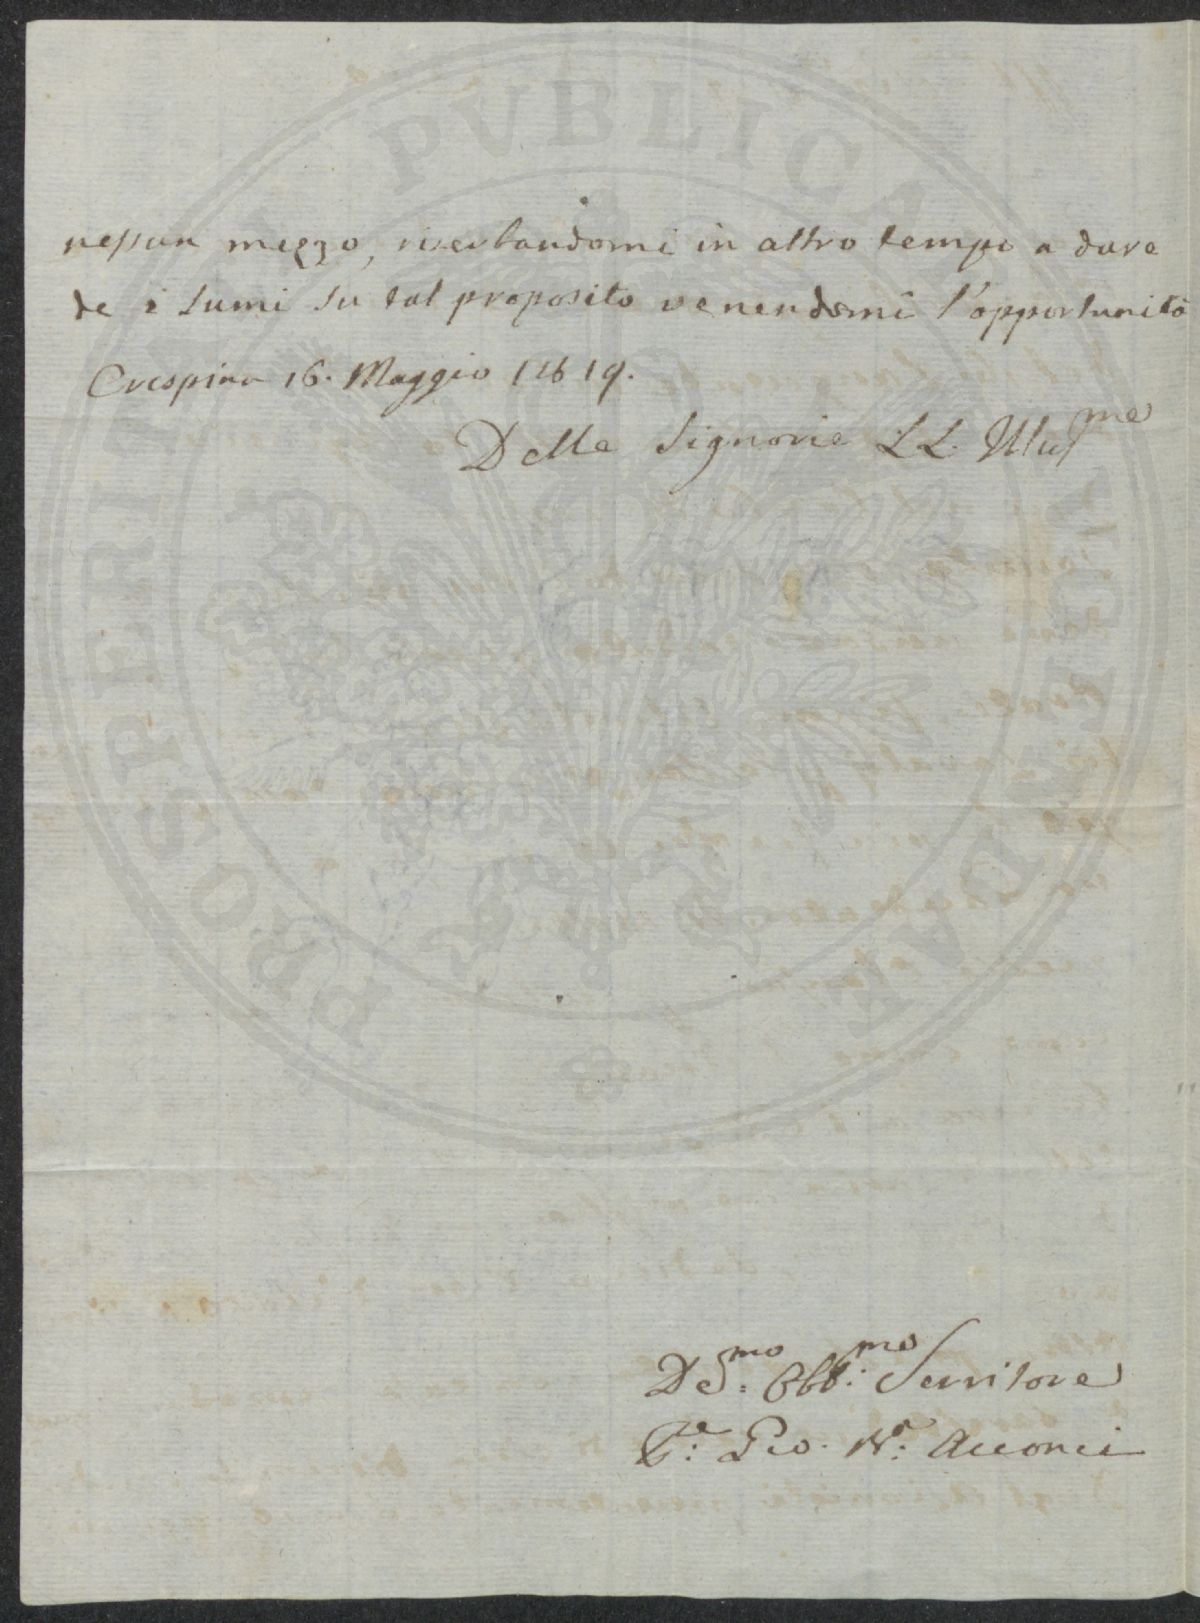 PROSPERITATI PVBLICAE AVGENDAE
nessun mezzo, riserbandomi in altro tempo a dare
de i lumi su tal proposito venendomi l'opportunità
Crespina 16. Maggio 1819.
Delle Signorie LL. Illu^me
De^mo: Obb^mo: Servitore
Gio. Acconci